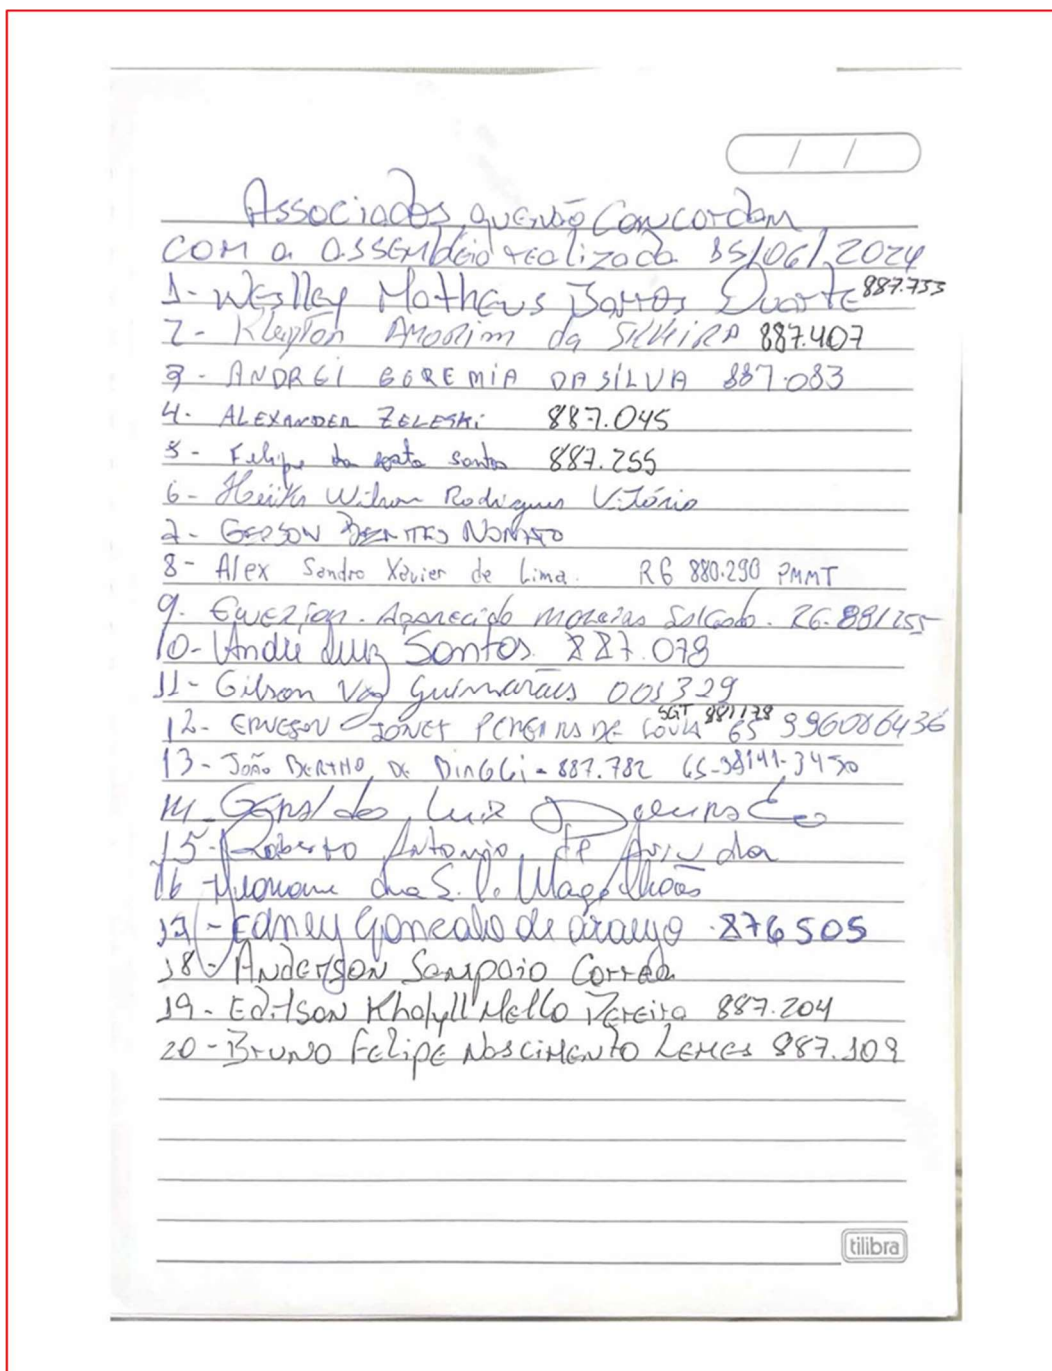 / /
Associados que não concordam
com a assembleia realizada 15/06/2024
1- Weslley Matheus Barros Duarte 887.753
2- Kleyton Amorim da Silveira 887.407
3- ANDREI GEREMIA DA SILVA 887.083
4- ALEXANDER ZELESKI 887.045
5- Felipe da Costa Santos 887.255
6- Wilson Rodrigues Vitório
7- GERSON BENITES NONATO
8- Alex Sandro Xavier de Lima. RG 880.290 PMMT
9. Aparecido Salgado. RG. 881255
10- André Luiz Santos. 887.078
11- Gilson Vaz Guimarães 001329
12- PEREIRA DE SGT 881178 65 996086436
13- João BERTHO DE DINGGI - 887.782 65-98141-3450
14- Geraldo Luiz
15- Roberto Antonio de Arruda
16- da S. Magalhães
17- Edney Gonçalo de Araujo. 876505
18- Anderson Sampaio Correa
19- Edilson Khalyll Mello Pereira 887.204
20- Bruno Felipe Nascimento Lemes 887.109
tilibra